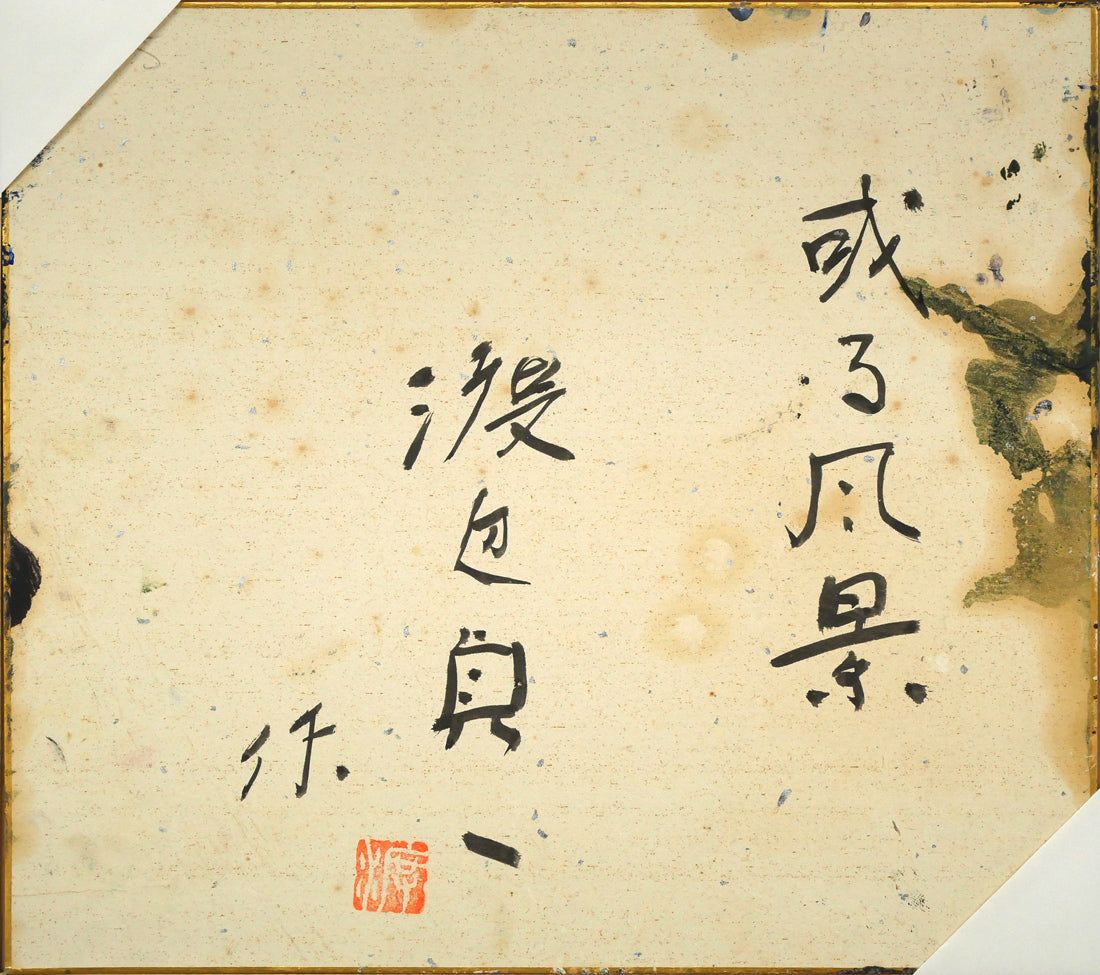 或る風景
渡辺貞一
作
渡